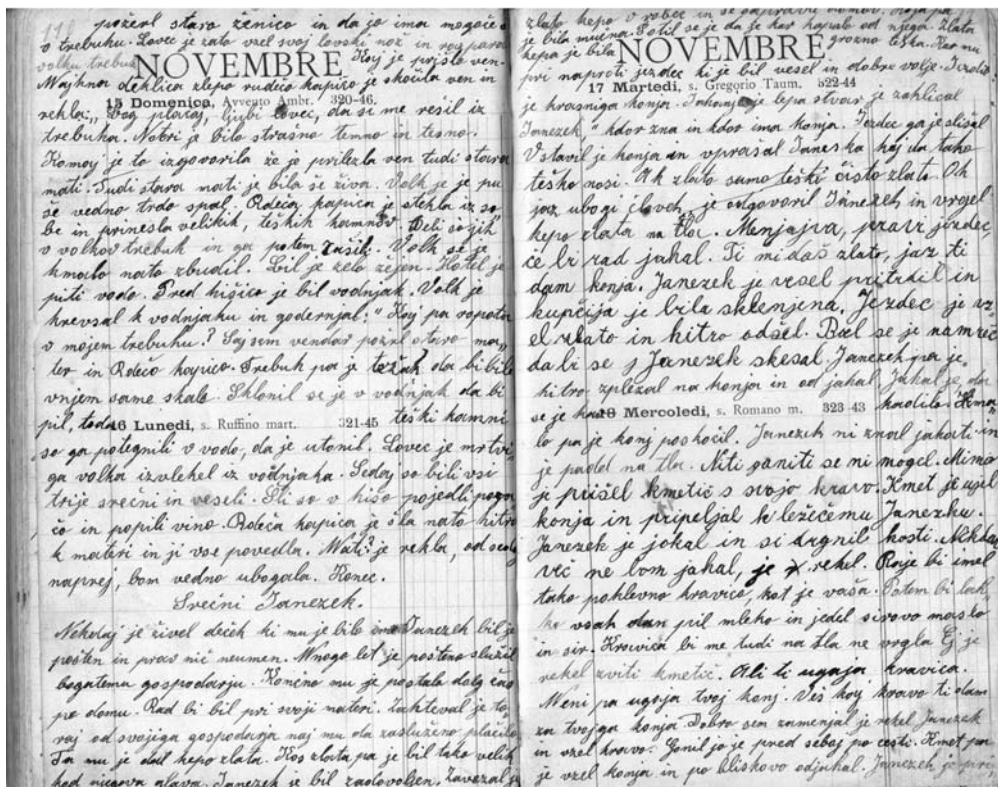 požerl staro ženico in da jo ima mogoče
v trebuhu. Lovec je zato vzel svoj lovski nož in rozparal
volku trebuh. Koj je prišlo ven
NOVEMBRE
Majhna deklica z lepo rudečo kapico je skočila ven in
15 Domenica, Avvento Ambr. 320-46.
rekla: „Bog plačaj, ljubi lovec, da si me rešil iz
trebuha. Notri je bilo strašno temno in tesno.
Komoj je to izgovorila že je prilezla ven tudi stara
mati. Tudi stara mati je bila še živa. Volk je pa
še vedno trdo spal. Rdeča kapica je stekla iz so
be in prinesla velikih, teških kamnov. Deli so jih
v volkov trebuh in ga potem zašili. Volk se je
kmalo nato zbudil. Bil je zelo žejen. Hotel je
piti vodo. Pred hišico je bil vodnjak. Volk je
krevsal k vodnjaku in godernjal: " Kaj pa ropota
v mojem trebuhu? Saj sem vendar požrl staro ma„
ter in Rdečo kapico. Trebuh pa je težak da bi bile
vnjem same skale. Sklonil se je v vodnjak da bi
pil, toda teški kamni
16 Lunedi, s. Ruffino mart. 321-45
so ga potegnili v vodo, da je utonil. Lovec je mrtvi„
ga volka izvlehel iz vodnjaka. Sedaj so bili vsi
trije srečni in veseli. Šli so v hišo pojedli poga
čo in popili vino. Rdeča kapica je šla nato hitro
k materi in ji vse povedla. Mati? je rekla, od sedaj
naprej, bom vedno ubogala. Konec.
Srečni Janezek.
Nekdaj je živel deček ki mu je bilo ime Janezek bil je
pošten in prav nič neumen. Mnogo let je pošteno služil
bogatemu gospodarju. Konšno mu je postalo dolg čas
po domu. Rad bi bil pri svoji materi. Zahteval je to„
raj od svojega gospodarja naj mu da zasluženo plačilo
Ta mu je dal kepo zlata. Kos zlata pa je bil tako velik
kod njegova glava. Janezek je bil zadovoljen. Zavezal je
zlato kepo v robec in se odpravil domov.
je bila mučna. Potil se je da je kar kapalo od njega. Zlata
kepa je bila grozno teška. Kar mu
NOVEMBRE
pri naproti jezdec ki je bil vesel in dobre volje. Jezdil
17 Martedi, s. Gregorio Taum. 322-44
je krasniga konja. Jahanje je lepa stvar je zaklical
Janezek " kdor zna in kdor ima konja. Jezdec ga je slišal
Vstavil je konja in vprašal Janezka kaj da tako
teško nosi. Ah zlato samo teški čisto zlato. Oh
jaz ubogi človek, je odgovoril Janezek in vrgel
kepo zlata na tla. Menjajva, pravi jezdec,
če bi rad jahal. Ti mi daš zlato, jaz ti
dam konja. Janezek je vesel pritrdil in
kupčija je bila sklenjena. Jezdec je vz
el zlato in hitro odšel. Bal se je namreč
da bi se j Janezek skesal. Janezek pa je
hitro zplezal na konja in od jahal. Jahal je, da
se je kar kadilo. Kma„
18 Mercoledi, s. Romano m. 323-43
lo pa je konj poskočil. Janezek ni znal jahati in
je padel na tla. Niti ganiti se ni mogel. Mimo
je prišel kmetič s svojo kravo. Kmet je ujel
konja in pripeljal k ležičemu Janezku.
Janezek je jokal in si drgnil kosti. Nikdar
več ne bom jahal, je rekel. Raje bi imel
tako pohlevno kravico, kot je vaša. Potem bi lah
ko vsak dan pil mleko in jedel sirovo maslo
in sir. Kravica bi me tudi na tla ne vrgla Ej je
rekel zviti kmetič. Ali ti ugaja kravica.
Meni pa ugaja tvoj konj. Veš koj kravo ti dam
za tvojga konja. Dobro sem zamenjal je rekel Janezek
in vzel kravo. Gonil jo je pred seboj po cesti. Kmet pa
je vzel konja in po bliskovo odjahal. Janezek je pri„